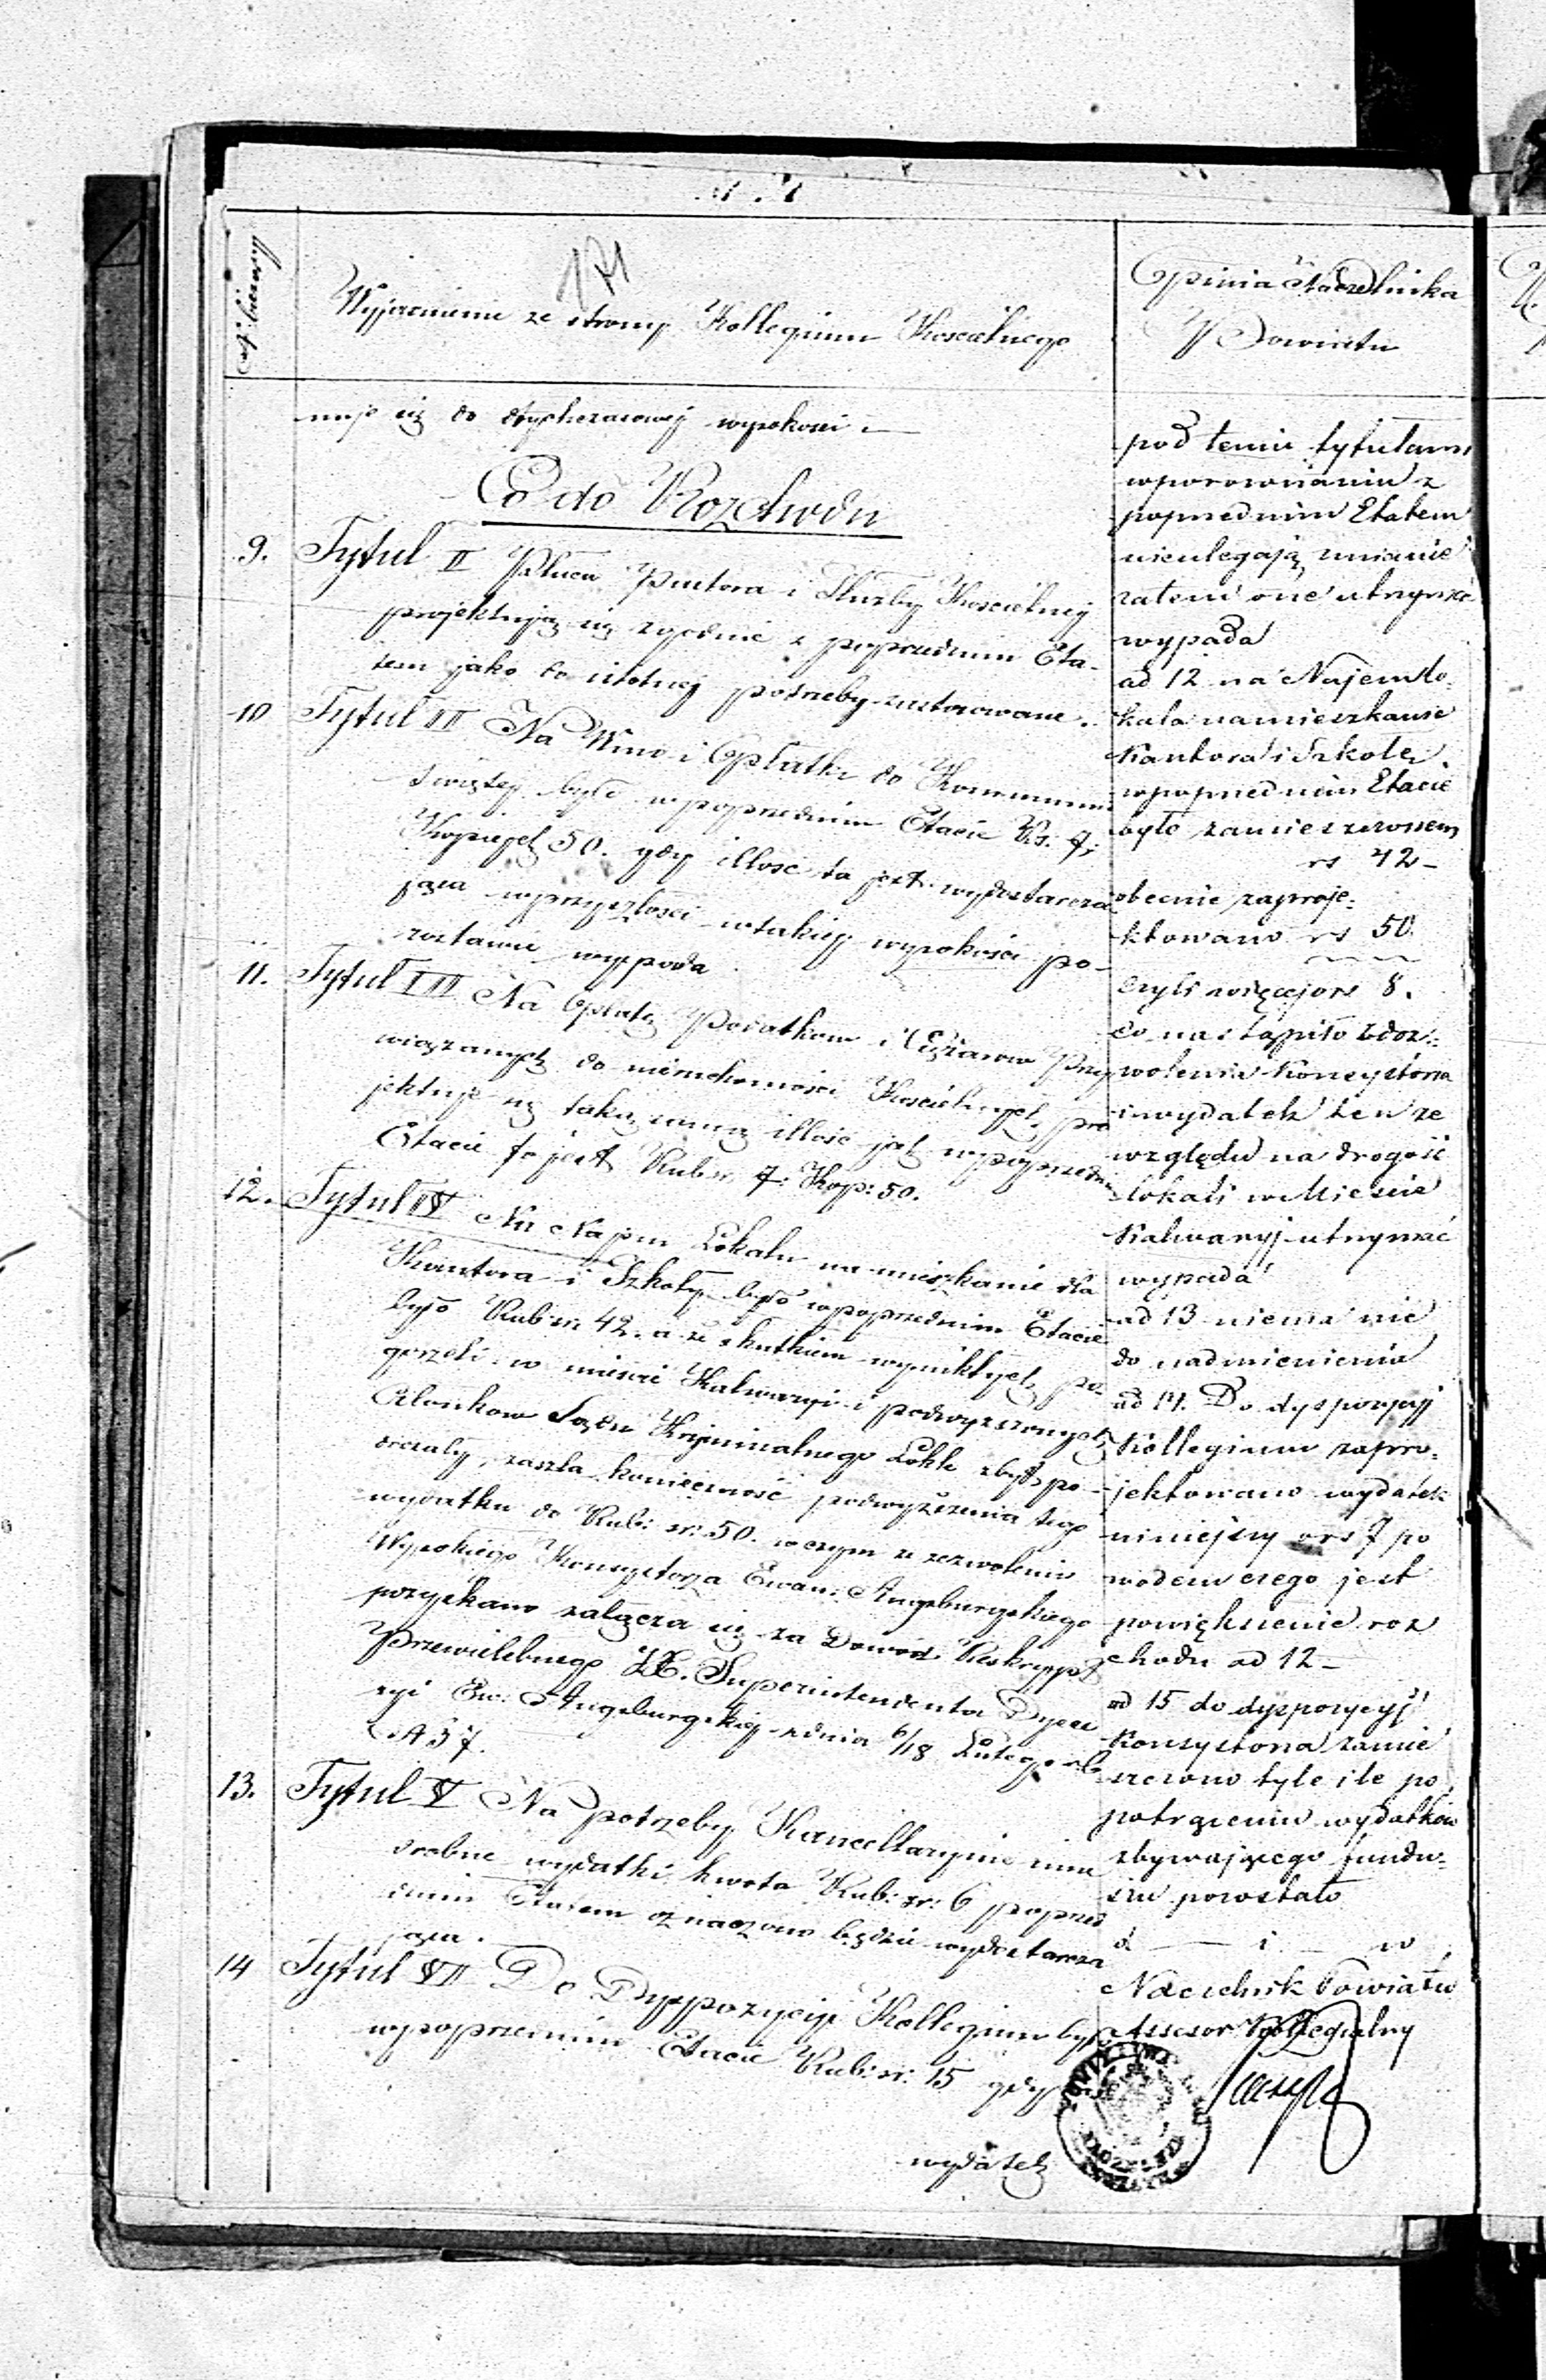 171
bieżący
Wyjasnienie ze strony Kollegium Koscielnego
muje się do dotychczasowej wysokosci.
Co do Rozchodu
9. Tytuł II Płaca Pastora i Służby Koscielnej
projektują się zgodnie z poprzednim Eta-
tem jako do istotnej potrzeby zastosowane.
10 Tytuł III Na Wino i Opłatki do Kommunii
Swiętej było wpoprzednim Etacie Rs. 7.
Kopiejek 50. gdy illosc ta jest wydostarcza
jąca wprzyszłosci wtakiej wysokosci po-
zostawić wypada
11. Tytuł III Na Opłatę Podatkow i Ciężarow Przy
wiązanych do nieruchomosci Koscielnych, pro
jektuje się taką samą illość jak wpoprzednim
Etacie to jest Rub. sr. 7. Kop: 50.
12. Tytuł IV Na Najem Lokalu na mieszkanie dla
Kantora i Szkoły było wpoprzednim Etacie
było Rub sr. 42. a ze skutkiem wynikłych po-
gorzeli w miescie Kalwaryi i podwyzszonych
Członkow Sądu Kryminalnego Lokle zbyt po-
drożały, zaszła konieczność podwyższenia tego
wydatku do Rub: sr: 50. wczym ze zezwoleniu
Wysokiego Konsystorza Ewan: Augsburgskiego
pozyskano załącza się za Dowod Reskrypt
Przewielebnego JX. Superintendenta Dyece
zyi Ew: Augsburgskiej zdnia 6/18 Lutego rb
N 37.
13. Tytuł V Na potrzeby Kancellaryine inne
drobne wydatki kwota Rub: sr: 6 poprzed
nim Etatem oznaczono będzie wydostarcza
jąca.
14 Tytuł VII Do Dyspozycyi Kollegium było
wpoprzednim Etacie Rub: sr: 15 gdy
wydatek
Opinia Naczelnika
Powiatu
pod temi tytułami
wporownaniu z
poprzednim Etatem
nieulegają zmianie
zatem one utrzymać
wypada
ad 12 na Najem lo-
kala namieszkanie
Kantora i Szkołe
wpoprzednim Etacie
było zamieszczonem
rs 42 -
obecnie zaproje-
ktowano rs 50
czyli więcej o rs 8.
co nastąpiło zdoz-
wolenia Konsystorza
i wydatek ten ze
względu na drogość
lokali w Miescie
Kalwaryj utrzymać
wypada
ad 13 niema nic
do nadmienienia
ad 14. Do dyspozycyj
Kollegium zapro-
jektowano wydatek
mniejszy o rs 7 po
wodem czego jest
powiększenie roz
chodu ad 12 -
ad 15 do dyspozycyj
Konsystorza zamie
szczono tyle ile po
potrąceniu wydatkow
zbywającego fundu-
szu powstało
Naczelnik Powiatu
Assesor Kollegialny